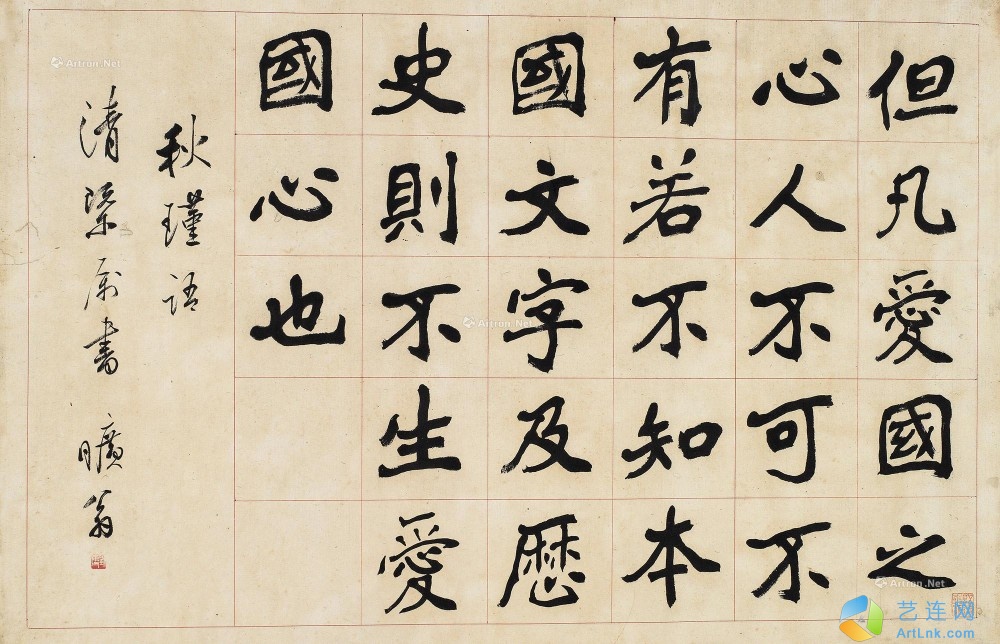 但凡愛國之
心人不可不
有若不知本
國文字及歷
史則不生愛
國心也
秋瑾語
清 属書 曠翁
Artron.Net
Artron.Net
Artron.Net
艺连网
ArtLnk.com